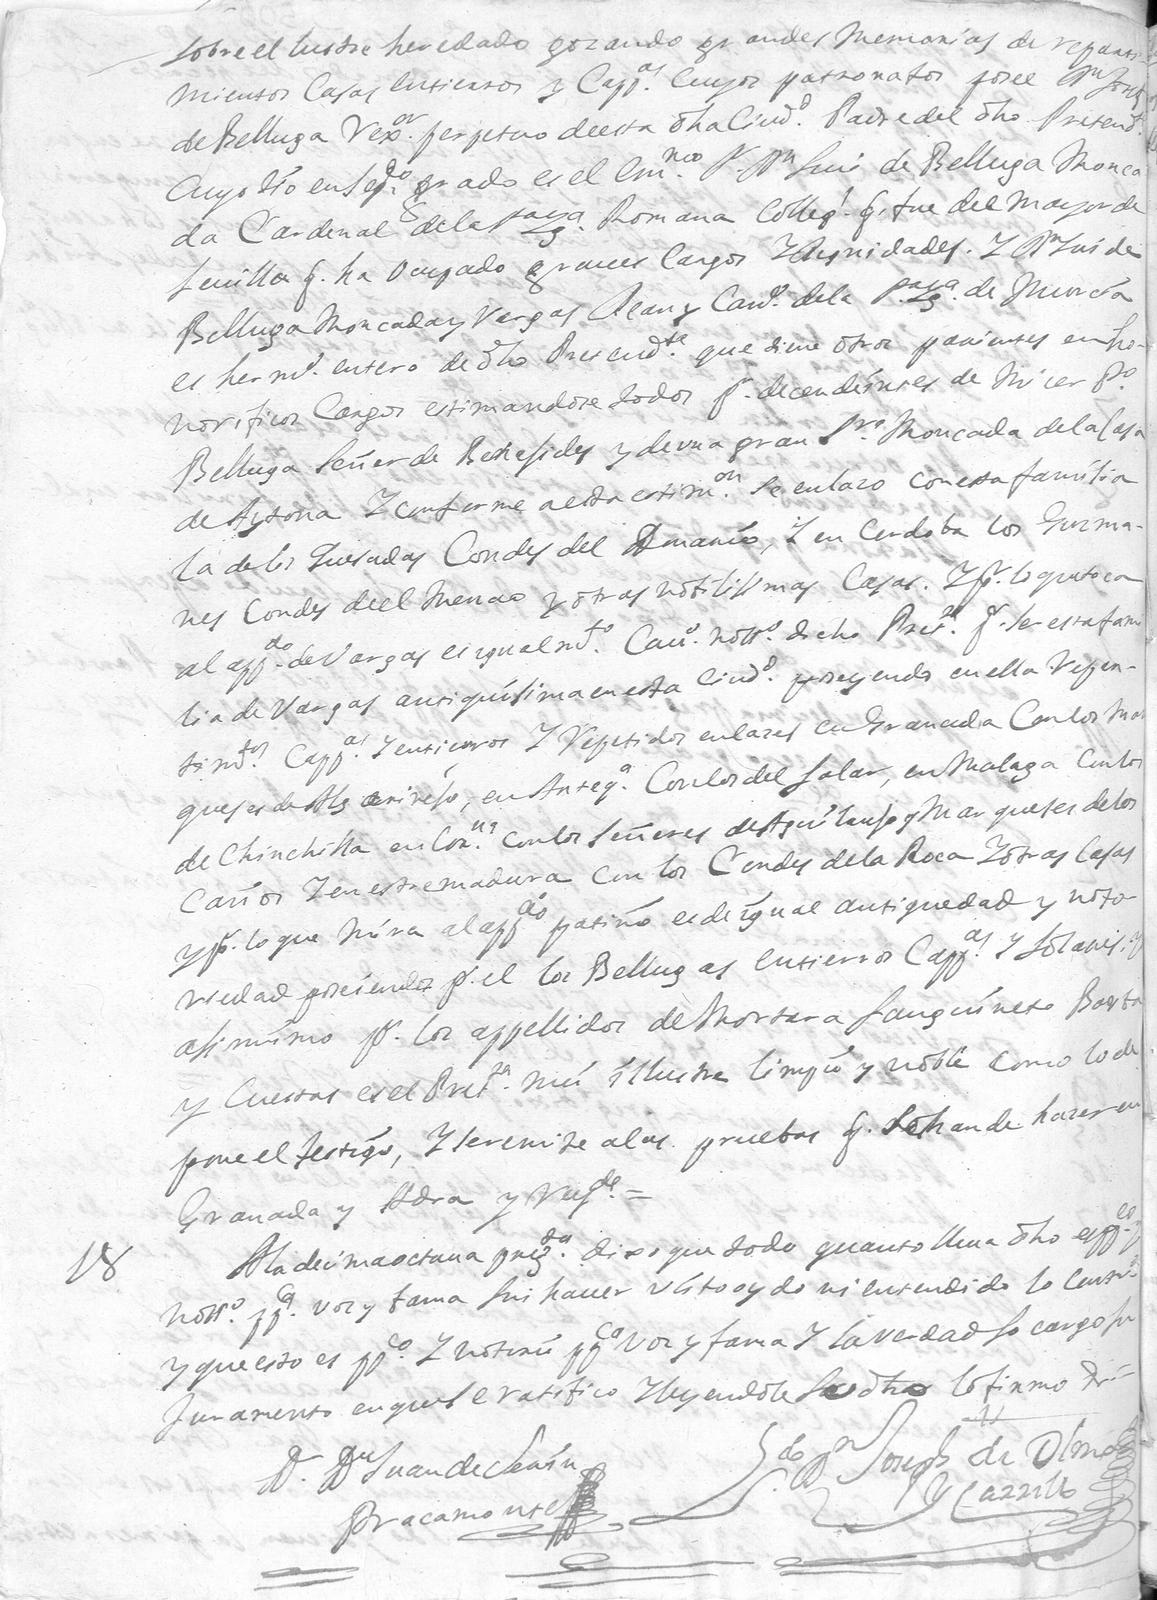 sobre el lustre heredado gozando grandes memorias de reparti-
mientos Casas entierros y Capp.as Cuyos patronatos posee Dn Joseph
de Belluga Rex.or perpetuo de esta dha Ciud.d Padre del dho Pretend.te
Cuyo tio en seg.do grado es el Em.mo S. Dn Luis de Belluga Monca
da Cardenal de la S.ta Yg.a Romana Colleg.l q. fue del mayor de
Sevilla q. ha ocupado graves Cargos Y Dignidades. Y Dn Luis de
Belluga Moncada y Vargas Dean y Can.o de la S.ta Yg.a de Murcia
es herm.o entero de dho Pretend.te que tiene otros parientes en ho-
norificos Cargos estimandose todos p.r decendientes de Micer P.o
Belluga Señor de y de una gran S.ra Moncada de la Casa
de Aytona Y conforme a esta estim.on se enlazo con esta familia
la de los Quesadas Condes del Donadio, Y en Cordoba los Guzma-
nes Condes del Menado y otras nobilisimas Casas. Y p.r lo que toca
al app.do de Vargas es igual m.te Cau. nott.o dicho Pret.te p.r ser esta fami
lia de Vargas antiquisima en esta Ciud.d poseyendo en ella Repar-
tim.tos Capp.as Y entierros Y repetidos enlazes en Granada Con los Mar
queses de Algarinejo, en Anteq.a Con los del Solar, en Malaga Con los
de Chinchilla en con los Señores de y Marqueses de los
Caños Y en estremadura con los Condes de la Roca Y otras Casas
y p.r lo que mira al app.do patiño es de igual antiguedad y noto-
riedad poseiendo p.r el los Bellugas entierros Capp.as Y solares, y
asimismo p.r los appellidos de Mortara Sanguineto
y Cuestas es el Pret.te mui illustre limpio y noble como lo de
pone el testigo, Y se remite a las pruebas q. se han de hazer en
Granada y Adra y =
18 A la decimaoctava preg.ta dixo que todo quanto lleva dho es pp.co y
nott.o pp.ca voz y fama sin haver visto oydo ni entendido lo contr.o
y que esto es pp.co Y notorio pp.ca voz y fama Y la verdad so cargo su
Juramento en que se ratifico Y leyendole su dho lo firmo
D. Dn Juan de
Bracamonte
L.do Dn Joseph de Olmo
y Carrillo